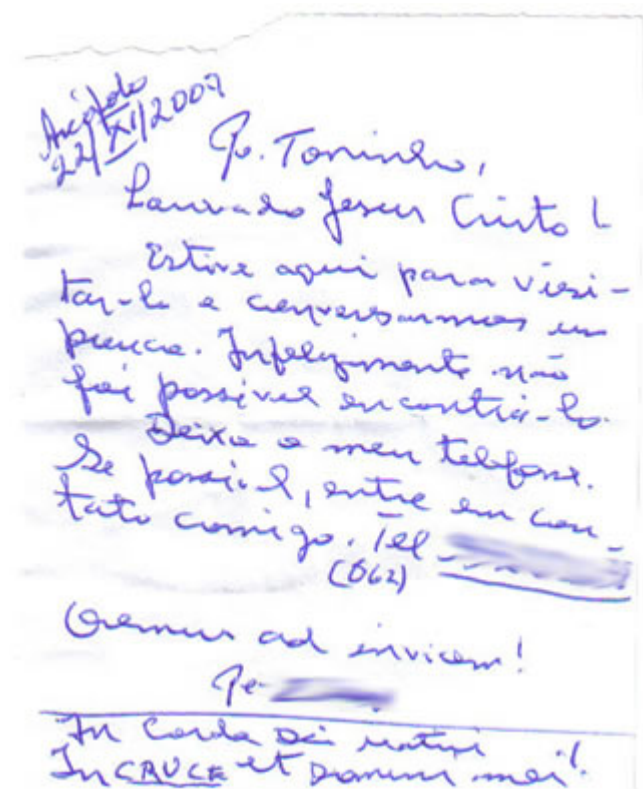 22/XI/2007
Pe. Toninho,
Louvado Jesus Cristo!
Estive aqui para visi-
tar-lo e conversarmos um
pouco. Infelizmente não
foi possível encontrá-lo.
Deixo o meu telefone.
Se possível, entre em con-
tato comigo. Tel
(062)
Oremus ad invicem!
Pe.
In Corde
In CRUCE et